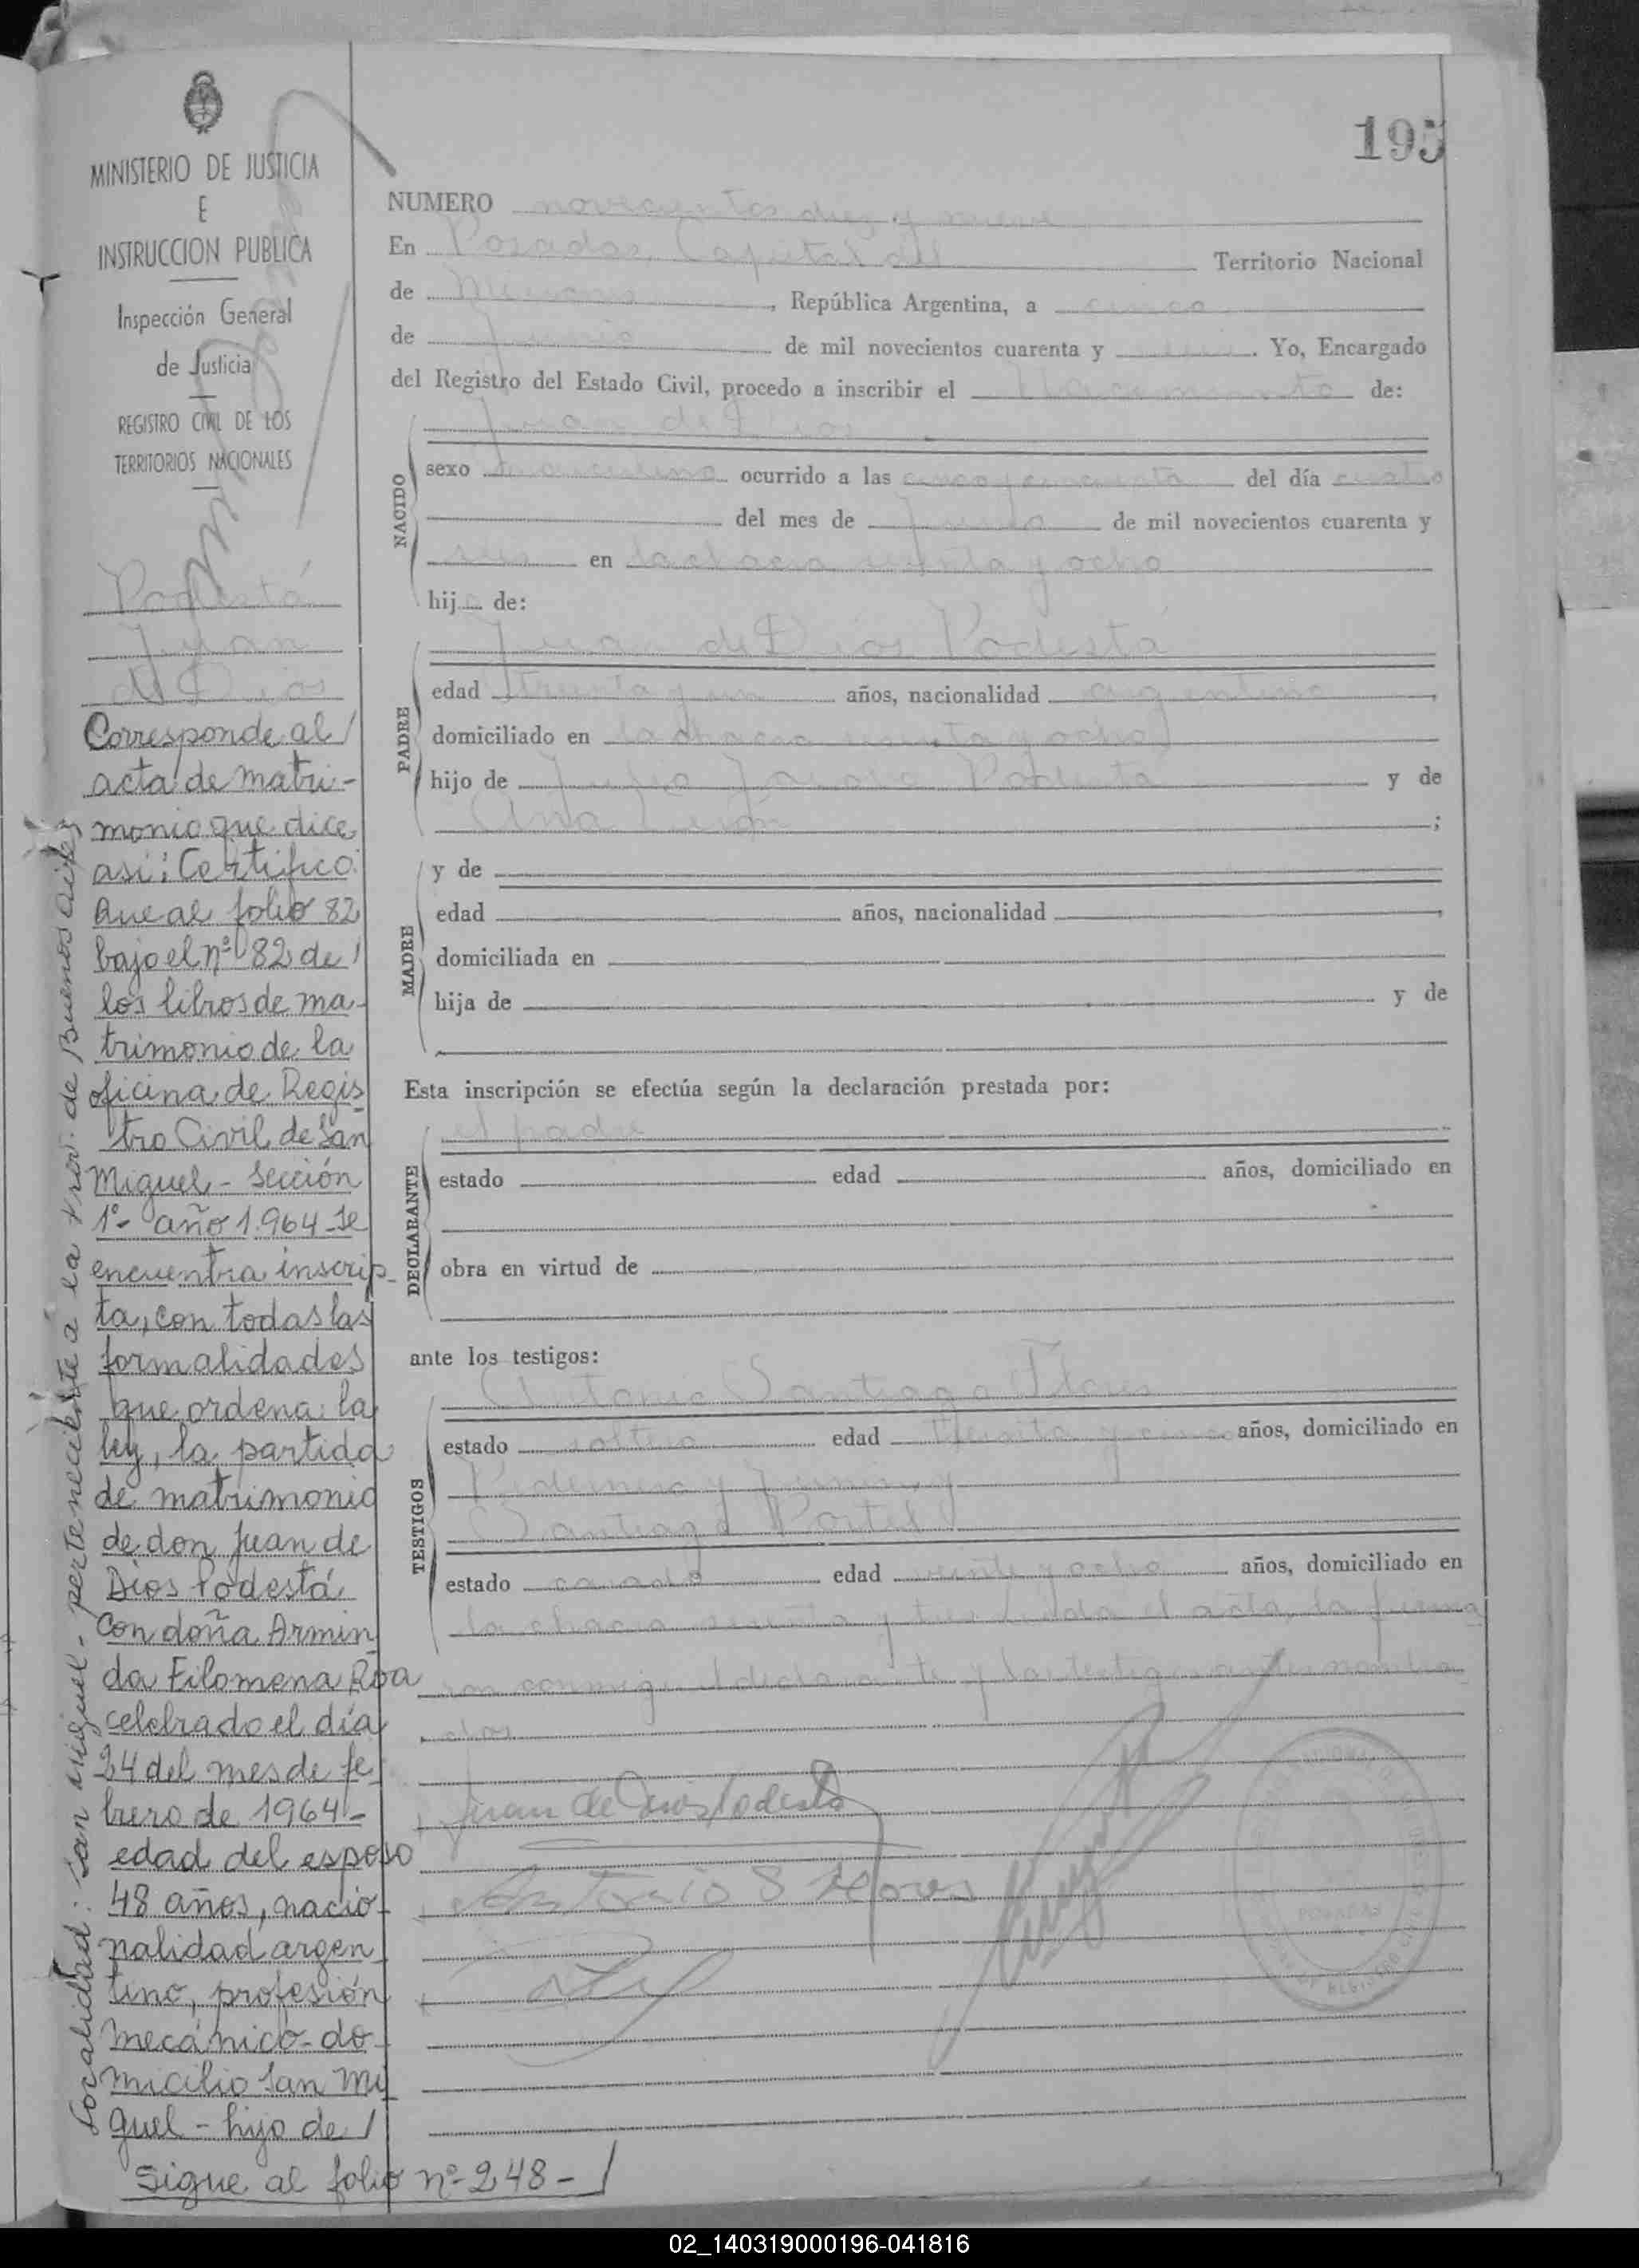 MINISTERIO DE JUSTICIA
E
INSTRUCCION PUBLICA
Inspección General
de Justicia
REGISTRO CIVIL DE LOS
TERRITORIOS NACIONALES
Podestá
Juan
de Dios
Corresponde al
acta de matri-
monio que dice
asi: Certifico:
Que al folio 82
bajo el nº 82 de
los libros de ma-
trimonio de la
oficina de Regis
tro Civil de San
Miguel - Sección
1º- año 1.964 - se
encuentra inscrip-
ta, con todas las
formalidades
que ordena la
ley, la partida
de matrimonio
de don Juan de
Dios Podestá
con doña Armin
da Filomena Roa
celebrado el día
24 del mes de fe
brero de 1964 -
edad del esposo
48 años, nacio-
nalidad argen
tino, profesión
mecánico - do-
micilio San Mi
guel - hijo de
Sigue al folio nº 248 -
Localidad: San Miguel - perteneciente a la Prov. de Buenos Aires
195
NUMERO novecientos diez y nueve
En Posadas, Capital del Territorio Nacional
de Misiones, República Argentina, a cinco
de Junio de mil novecientos cuarenta y seis. Yo, Encargado
del Registro del Estado Civil, procedo a inscribir el Nacimiento de:
Juan de Dios
NACIDO
sexo masculino ocurrido a las cinco y cincuenta del día cuatro
del mes de Junio de mil novecientos cuarenta y
seis en la chacra y ocho
hijo de:
Juan de Dios Podestá
PADRE
edad treinta y un años, nacionalidad argentino,
domiciliado en la chacra y ocho
hijo de Podestá y de
Ana ;
MADRE
y de
edad años, nacionalidad ,
domiciliada en
hija de y de
Esta inscripción se efectúa según la declaración prestada por:
el padre
DECLARANTE
estado edad años, domiciliado en
obra en virtud de
ante los testigos:
Antonio Santiago Flores
TESTIGOS
estado soltero edad treinta y cinco años, domiciliado en
y
Santiago
estado casado edad veinte y ocho años, domiciliado en
la chacra y tres Leída el acta, la firma
ron conmigo el declarante y los testigos antes nombra
dos.
Juan de Dios Podestá
Antonio S Flores
POSADAS
02_140319000196-041816